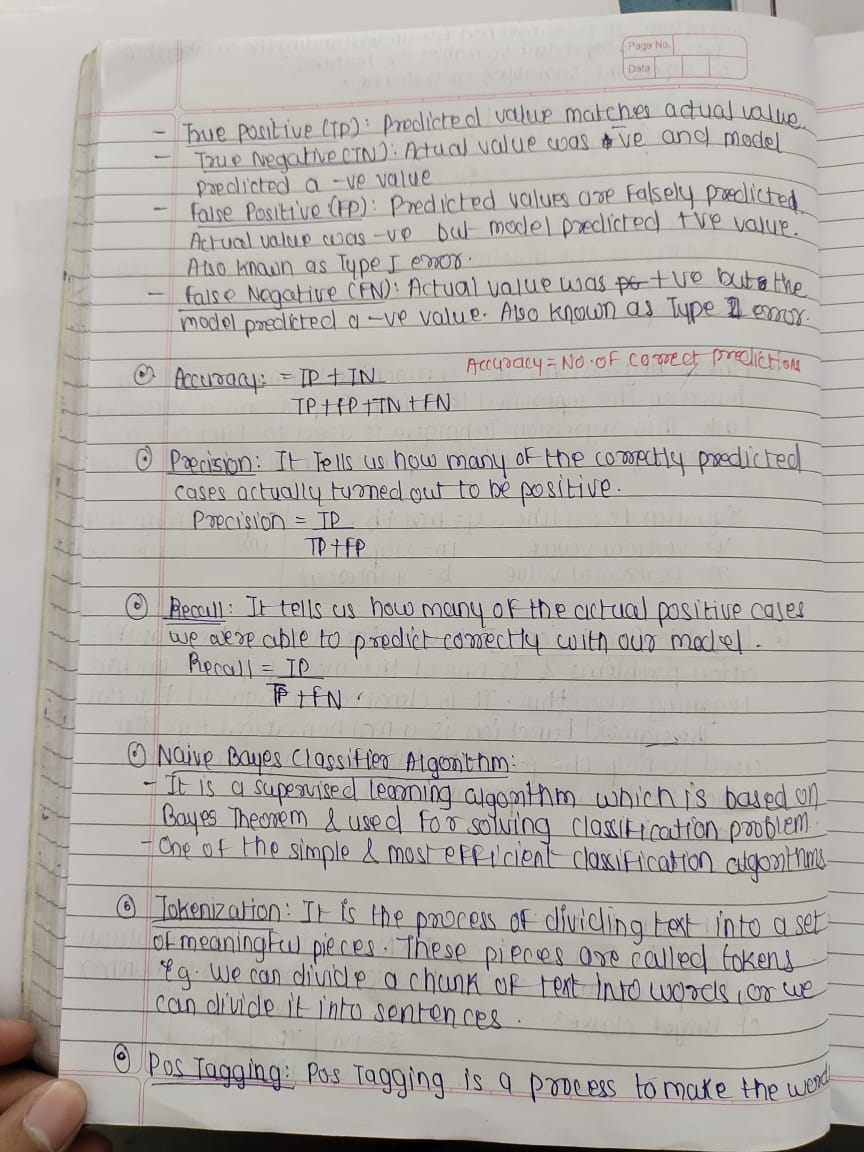 Page No.
Date
- True Positive (TP): Predicted value matches actual value.
- True Negative (TN): Actual value was -ve and model
predicted a -ve value
- False Positive (FP): Predicted values are Falsely predicted.
Actual value was -ve but model predicted +ve value.
Also known as Type I error.
- False Negative (FN): Actual value was +ve but the
model predicted a -ve value. Also known as Type II error.
Accuracy: = TP + TN
Accuracy = No. of correct prediction
TP + FP + TN + FN
Precision: It Tells us how many of the correctly predicted
cases actually turned out to be positive.
Precision = TP
TP + FP
Recall: It tells us how many of the actual positive cases
we were able to predict correctly with our model.
Recall = TP
TP + FN
Naive Bayes Classifier Algorithm:
- It is a supervised learning algorithm which is based on
Bayes Theorem & used for solving classification problem.
- One of the simple & most efficient classification algorithms
Tokenization: It is the process of dividing text into a set
of meaningful pieces. These pieces are called tokens.
eg. We can divide a chunk of text into words, or we
can divide it into sentences.
Pos Tagging: Pos Tagging is a process to make the